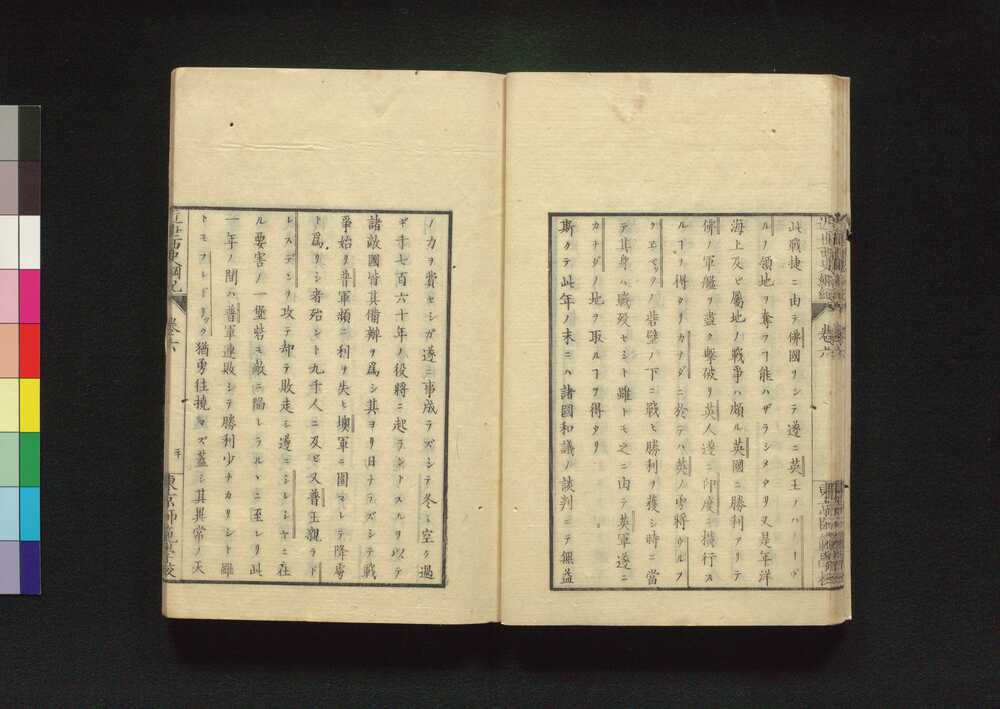 此戰捷ニ由テ佛國ヲシテ遂ニ英王ノハ
ルノ領地ヲ奪フヿ能ハザラシメタリ又是年洋
海上及ヒ屬地ノ戰爭ハ頗ル英國ニ勝利アリテ
佛ノ軍艦ヲ盡ク擊破リ英人遂ニ印度ニ横行ス
ルヿヲ得タリカナダニ於テハ英ノ勇將ウルフ
クエベックノ砦壁ノ下ニ戰ヒ勝利ヲ獲シ時ニ當
テ其身ハ戰殁セシト雖トモ之ニ由テ英軍遂ニ
カナダノ地ヲ取ルヿヲ得タリ
斯クテ此年ノ末ニハ諸國和議ノ談判ニテ無益
ノカヲ費セシガ遂ニ事成ラズシテ冬ヲ空ク過
ギ千七百六十年ノ役將ニ起ラントスルヲ以テ
諸敵國皆其備辦ヲ爲シ其ヨリ日ナラズシテ戰
爭始リ普軍頻ニ利ヲ失ヒ墺軍ニ圍マレテ降虜
ト爲リシ者殆ント九千人ニ及ヒ又普王親ラド
レスデンヲ攻テ却テ敗走シ遂ニシレシヤニ在
ル要害ノ一堡砦モ敵ニ陷レラルヽニ至レリ此
一年ノ間ハ普軍連敗シテ勝利少ナカリシト雖
トモフレドリック猶勇往撓マズ蓋シ其異常ノ天
近世西史綱紀 卷六
東京師範學校